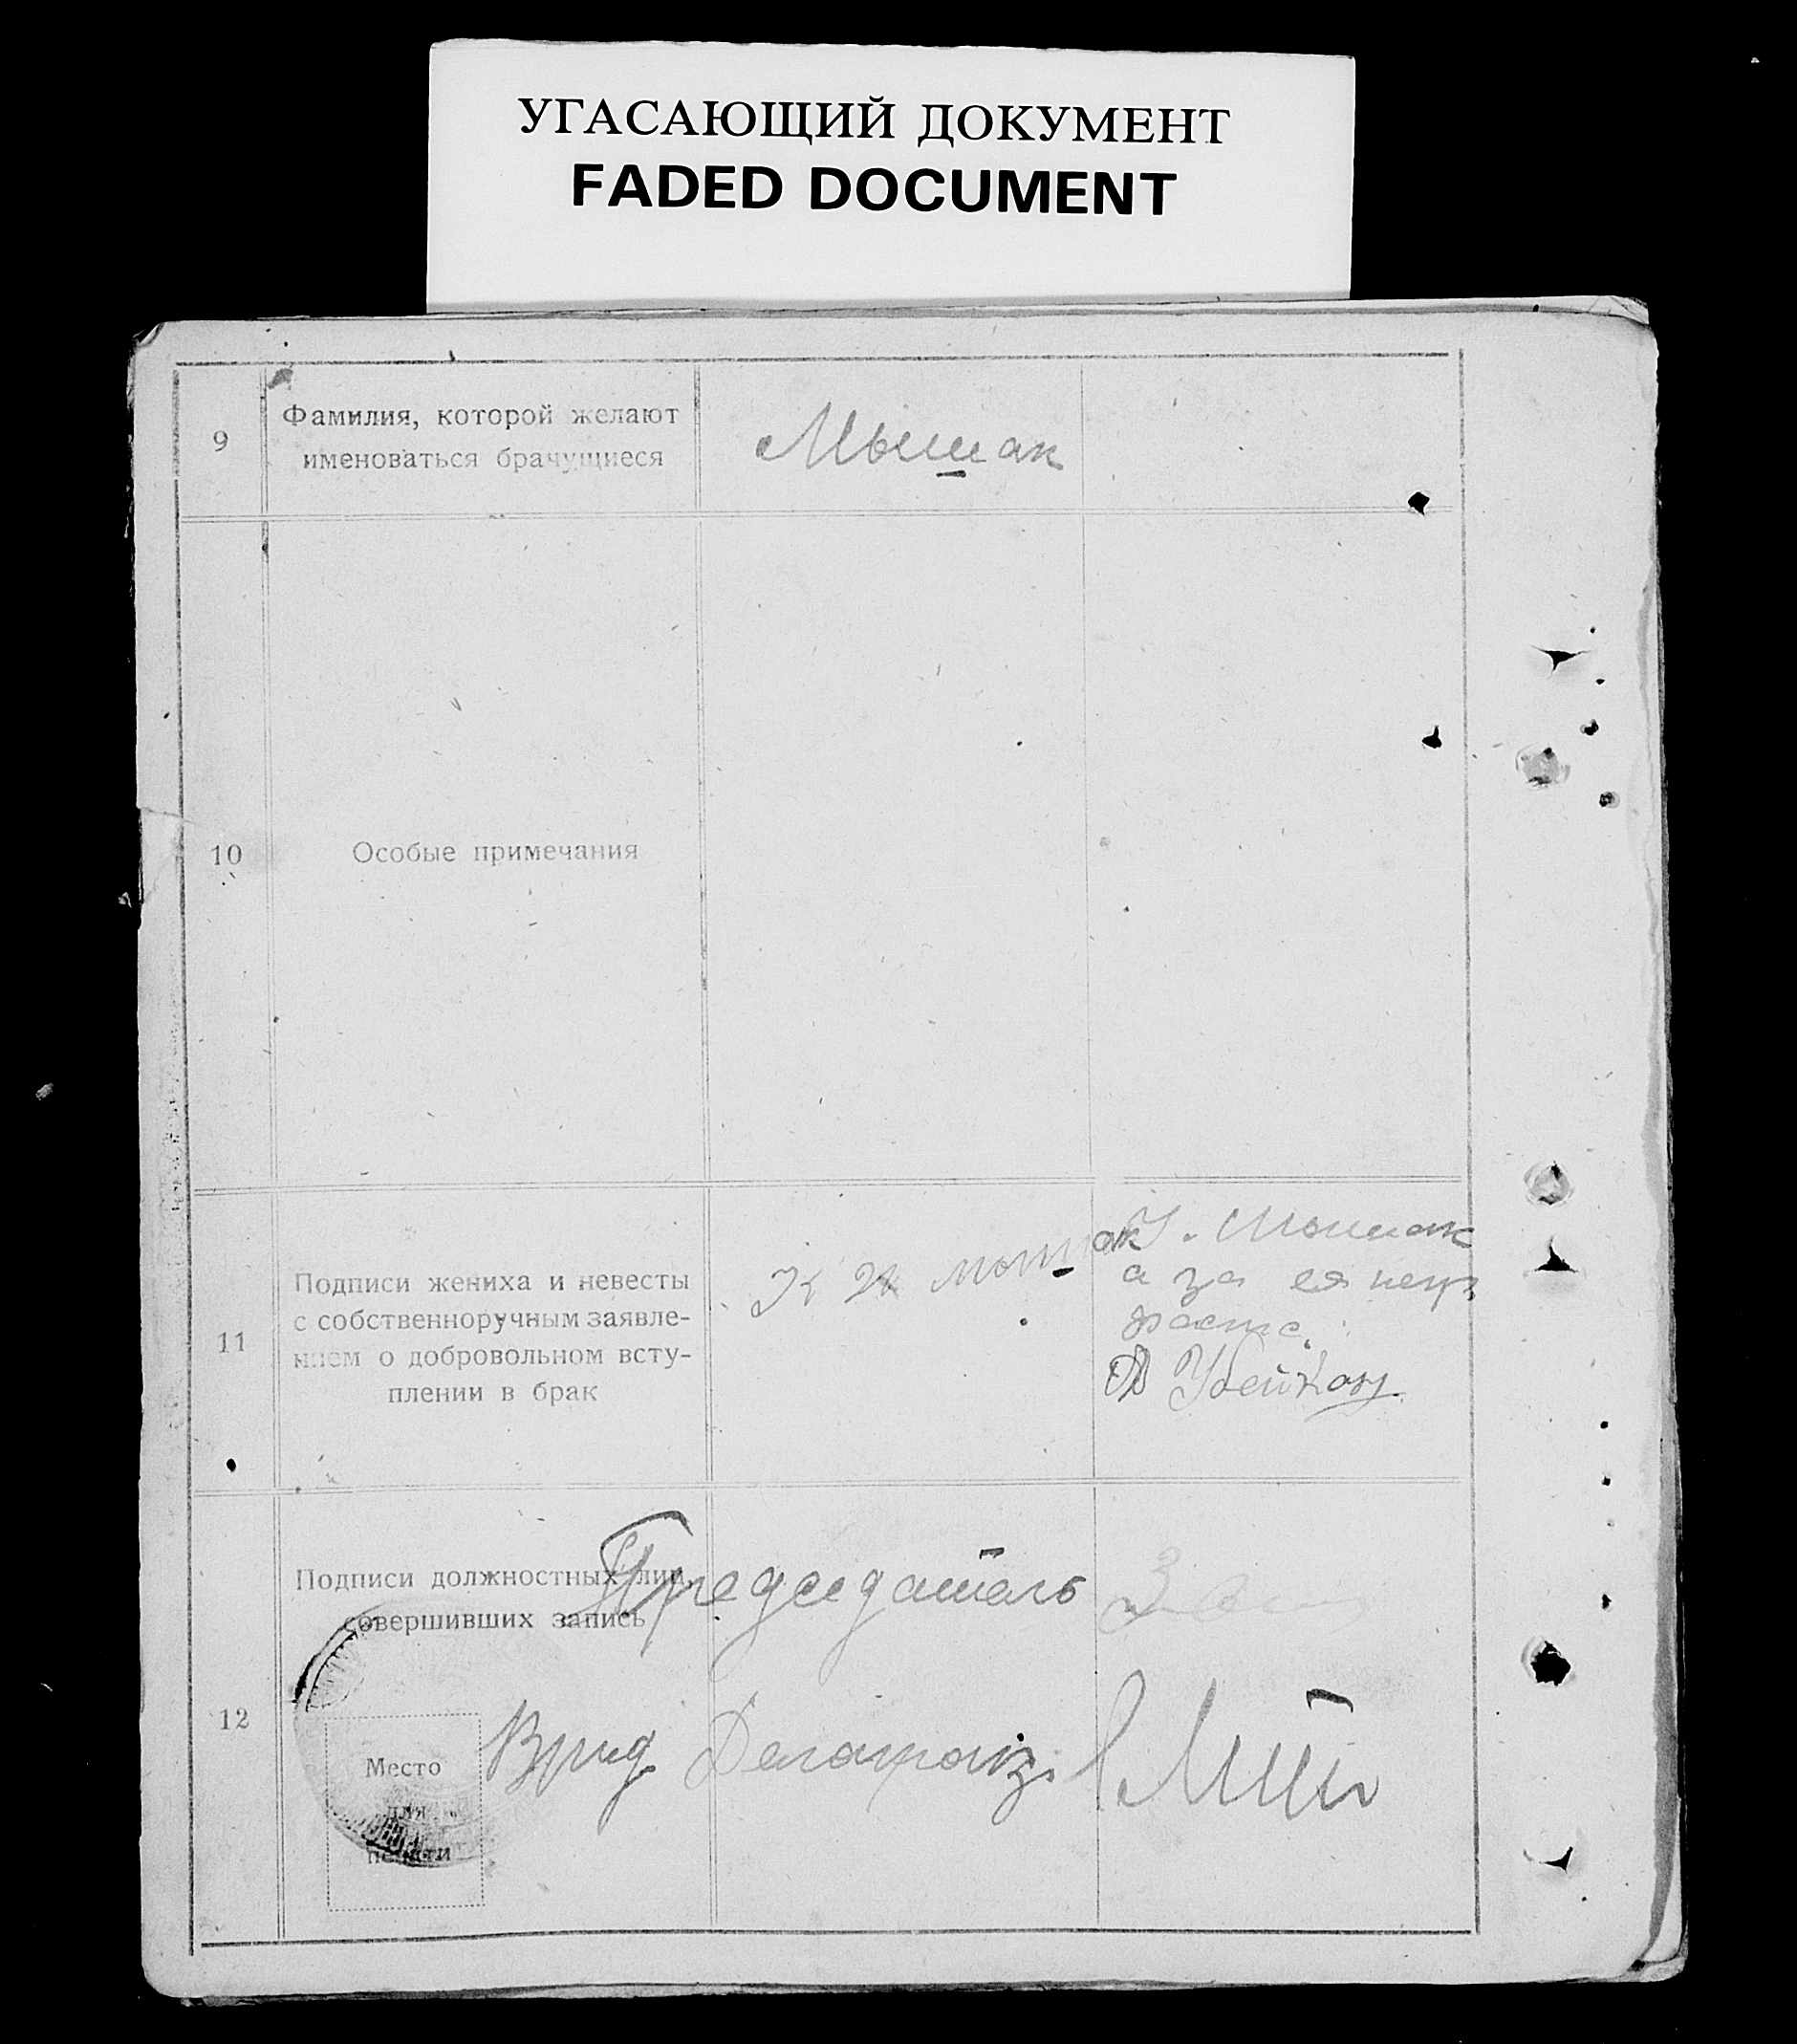 УГАСАЮЩИЙ ДОКУМЕНТ
FADED DOCUMENT
9
Фамилия, которой желают
именоваться брачущиеся
Мышак
10
Особые примечания
11
Подписи жениха и невесты
с собственноручным заявле-
нием о добровольном всту-
плении в брак
К И мышак
У. Мышак
а за ея негр
12
Подписи должностных лиц,
совершивших запись
Председатель
Место
для
печати
Врид Делопроиз.